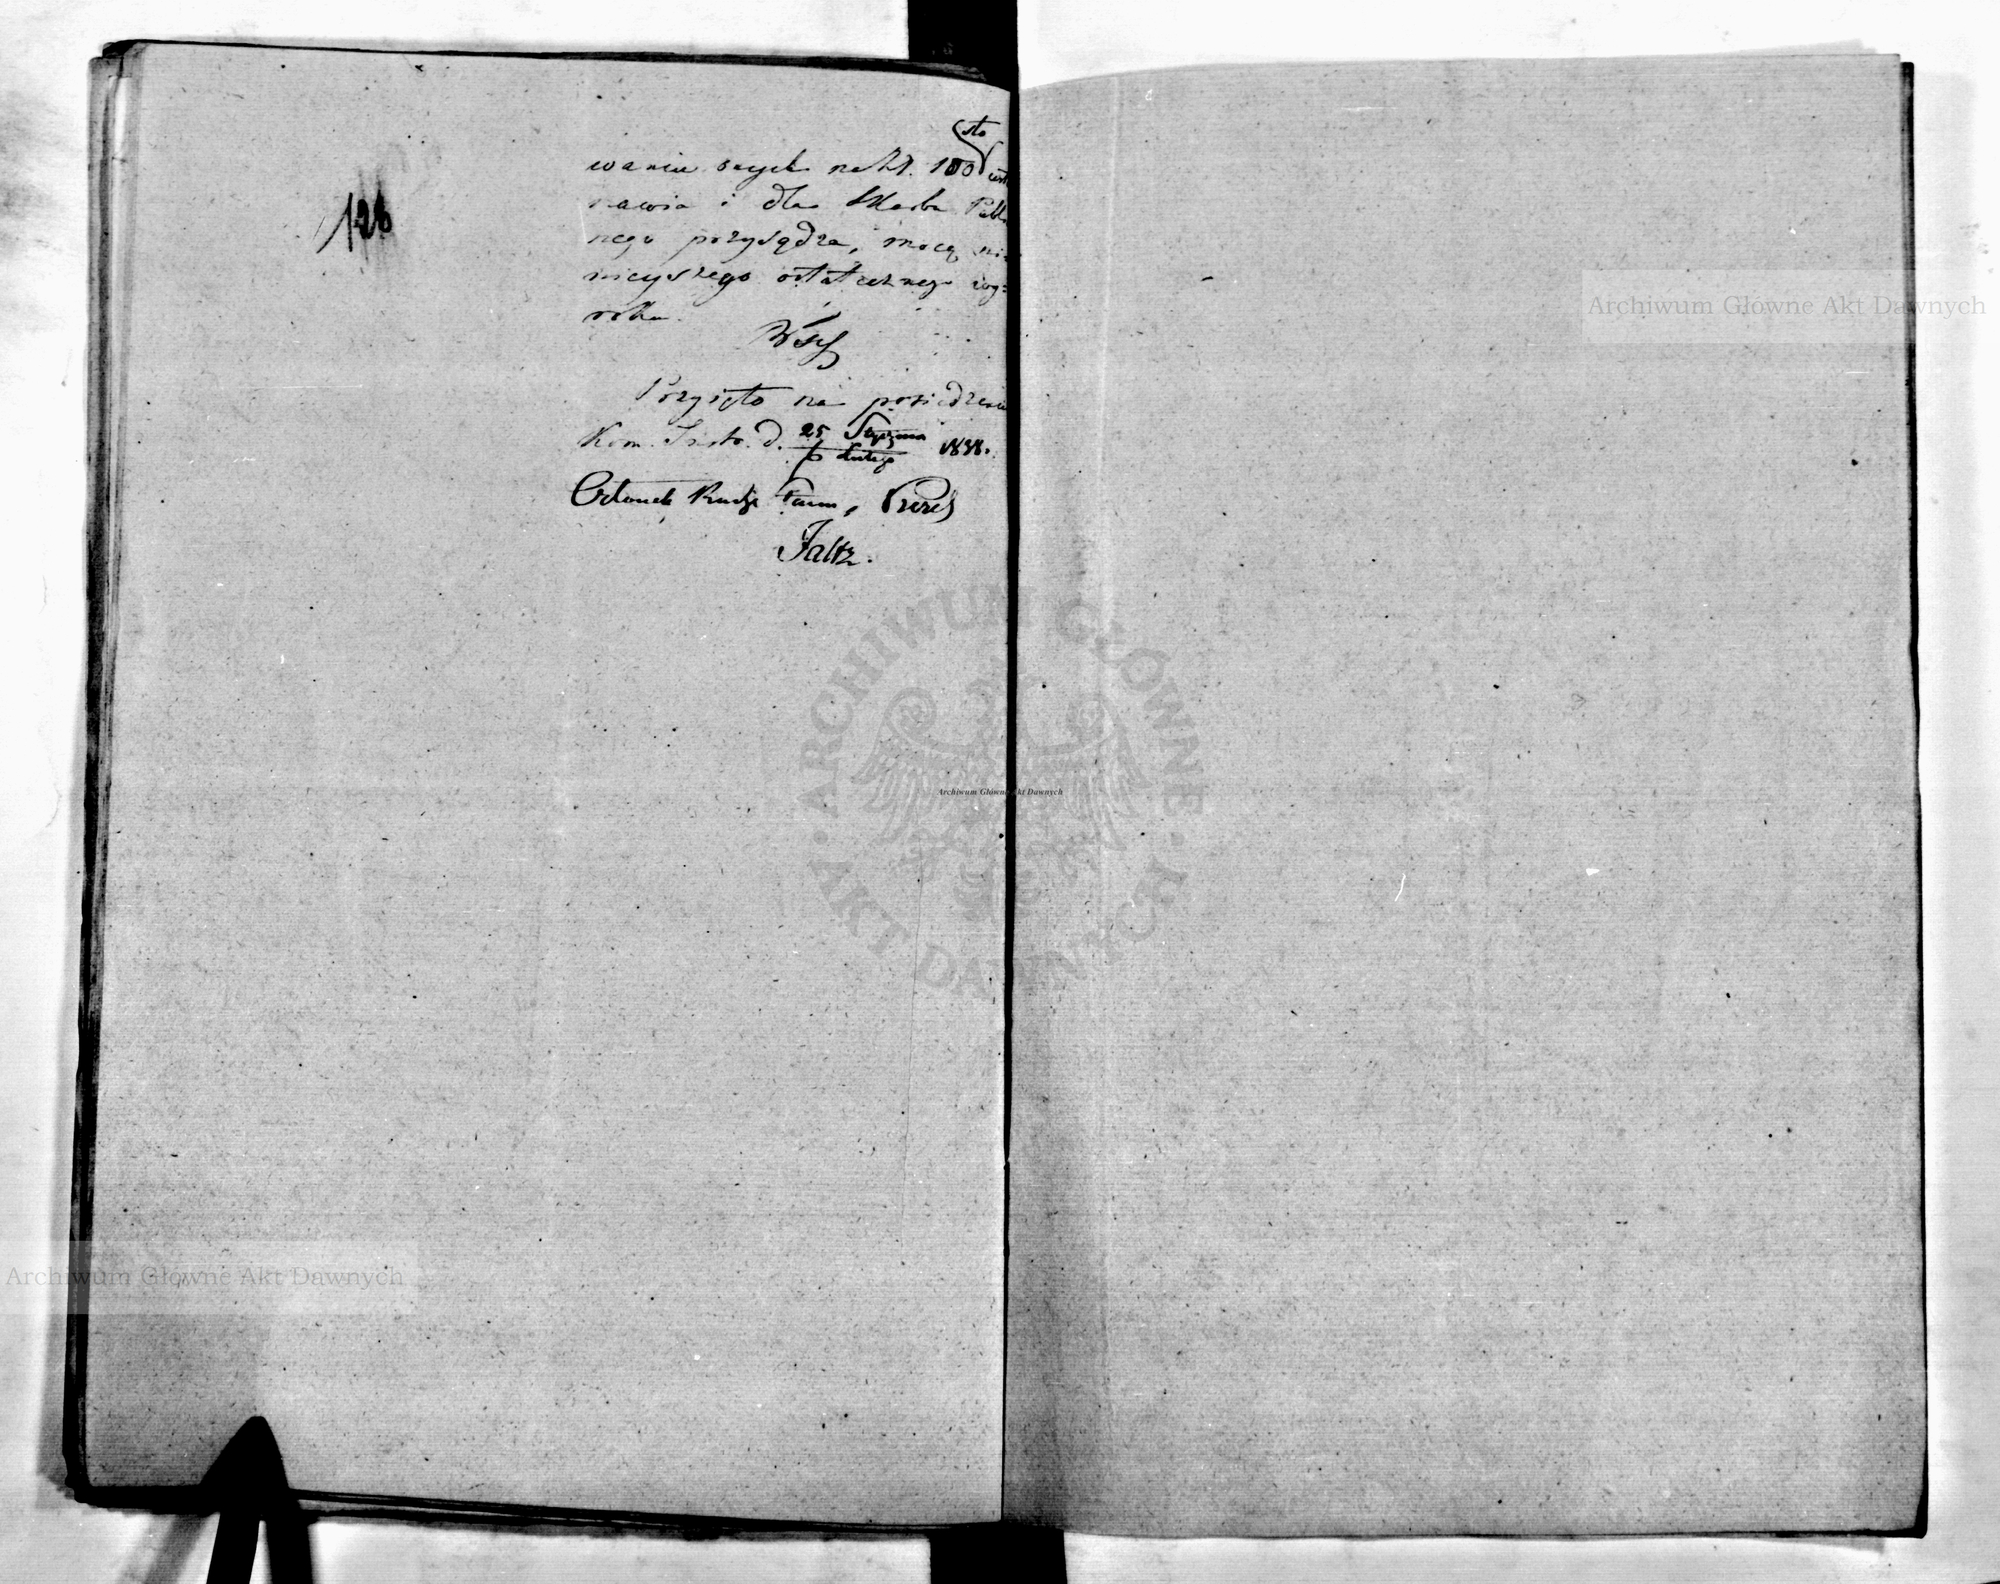 128
(sto
wania onych na Zł. 100
nawia i dla Skarbu Publ
nego przysądza, mocą ni
nieyszego ostatecznego wy=
roku.
Przyięto na posiedzeniu
Kom. d. 25 Stycznia / 6 Lutego 1838.
Członek Prezes
Faltz.
Archiwum Główne Akt Dawnych
ARCHIWUM GŁÓWNE
AKT DAWNYCH
Archiwum Główne Akt Dawnych
Archiwum Główne Akt Dawnych